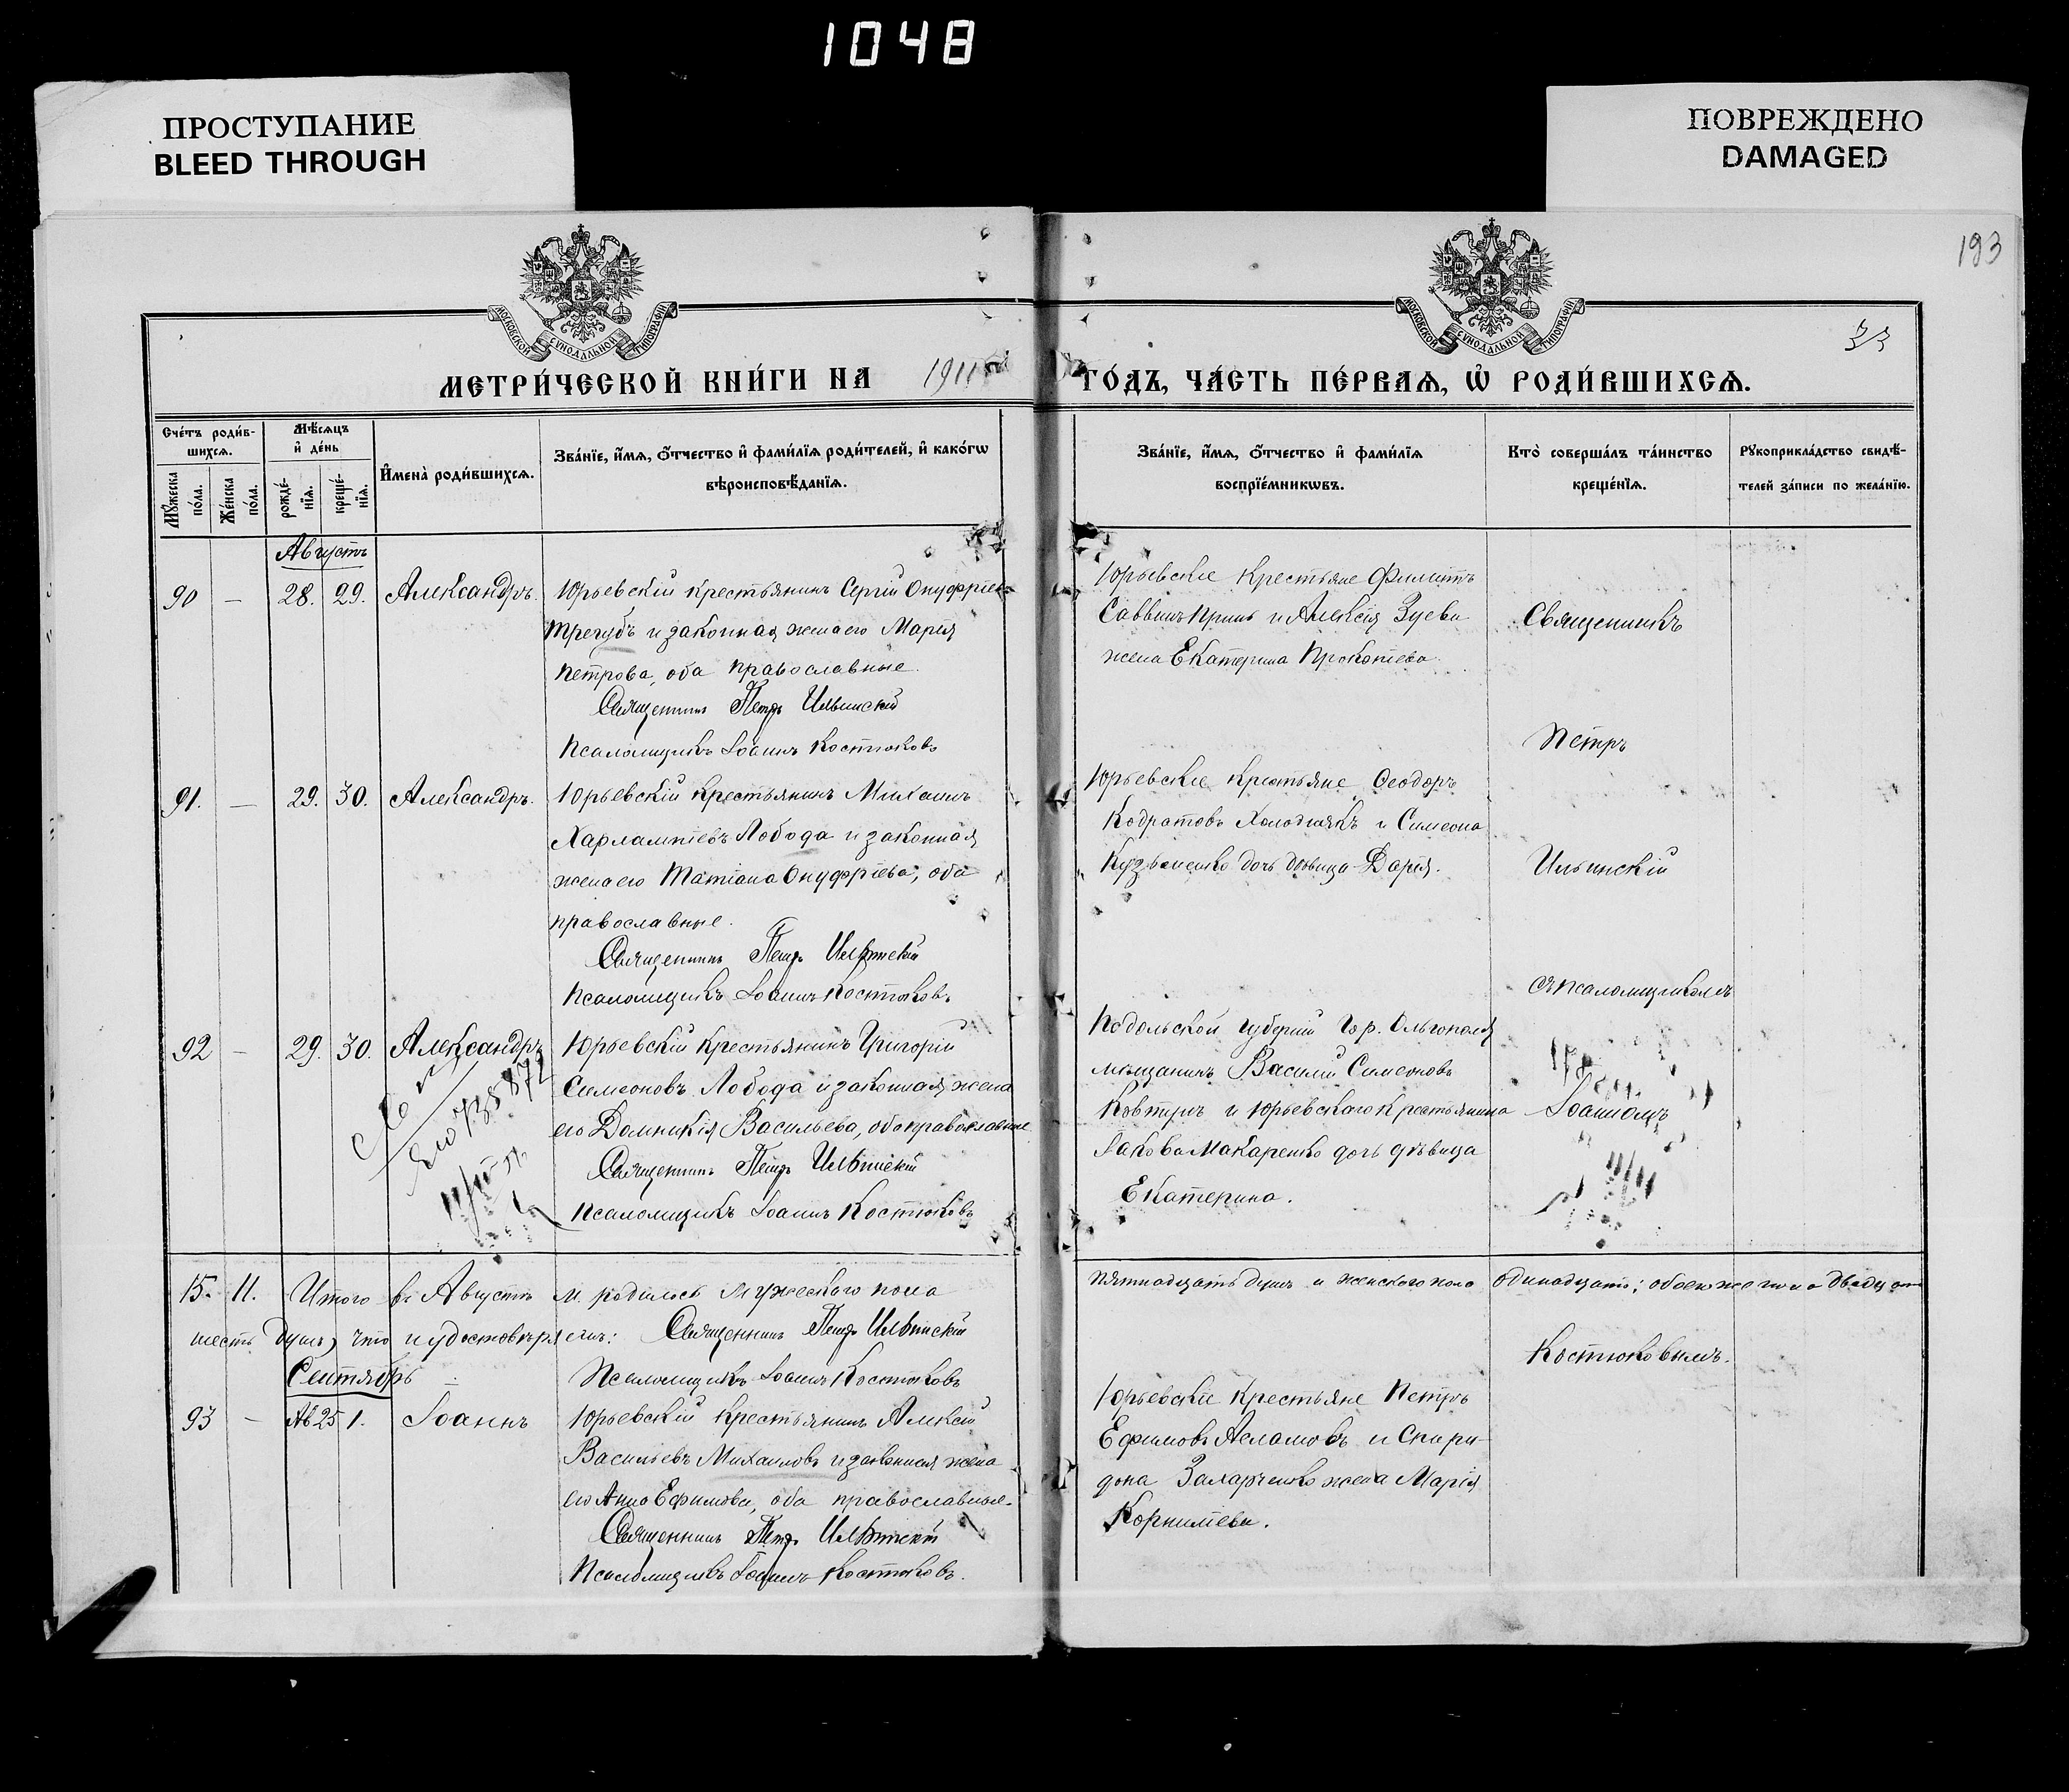 1048
ПРОСТУПАНИЕ
BLEED THROUGH
ПОВРЕЖДЕНО
DAMAGED
193
33
МОСКОВСКОЙ СѴНОДАЛЬНОЙ ТИПОГРАФІИ
МОСКОВСКОЙ СѴНОДАЛЬНОЙ ТИПОГРАФІИ
МЕТРИ́ЧЕСКОЙ КНИ́ГИ НА 1911 ГО́ДЪ, ЧА́СТЬ ПЕ́РВАѦ, Ѡ҆ РОДИ́ВШИХСѦ.
Сче́тъ роди́в-
шихсѧ.
Мꙋ́жеска по́ла.
Же́нска по́ла.
Мѣ́сѧцъ
и҆ де́нь
рожде́-
нїѧ.
креще́-
нїѧ.
И҆мена̀ роди́вшихсѧ.
Зва́нїе, и҆́мѧ, ѻ҆́тчество и҆ фами́лїѧ роди́телей, и҆ како́гѡ
вѣроисповѣ́данїѧ.
Зва́нїе, и҆́мѧ, ѻ҆́тчество и҆ фами́лїѧ
воспрїе́мникѡвъ.
Кто̀ соверша́лъ та́инство
креще́нїѧ.
Рꙋкоприкла́дство свидѣ́-
телей за́писи по жела́нїю.
Августъ
90 — 28. 29. Александръ.
Юрьевскій крестьянинъ Сергій Онуфріевъ
Трегубъ и законная жена его Марія
Петрова, оба православные.
Священникъ Петръ Ильинскій
Псаломщикъ Іоаннъ Костюковъ
Юрьевскіе крестьяне Филиппъ
Саввинъ и Алексія Зуева
жена Екатерина Прокопіева.
Священникъ
Петръ
91. — 29. 30. Александръ.
Юрьевскій крестьянинъ Михаилъ
Харлампіевъ Лобода и законная
жена его Татіана Онуфріева, оба
православные.
Священникъ Петръ Ильинскій
Псаломщикъ Іоаннъ Костюковъ
Юрьевскіе крестьяне Ѳеодоръ
Кодратовъ Холоднякъ и Симеона
Кузьменко дочь дѣвица Дарія.
Ильинскій
съ псаломщикомъ
92 — 29. 30. Александръ
Юрьевскій крестьянинъ Григорій
Симеоновъ Лобода и законная жена
его Домникія Васильева, оба православные
Священникъ Петръ Ильинскій
Псаломщикъ Іоаннъ Костюковъ
Подольской губерніи гор. Ольгополя
мѣщанинъ Василій Симеоновъ
Ковтунъ и Юрьевского крестьянина
Іакова Макаренко дочь дѣвица
Екатерина.
Іоанномъ
15. 11. Итого въ Августѣ м. родилось мужескаго пола пятнадцать душъ и женскаго пола одинадцать; обоего же пола двадцать
шесть душъ, что и удостовѣряемъ: Священникъ Петръ Ильинскій
Псаломщикъ Іоаннъ Костюковъ
Костюковымъ.
Сентябрь
93 — Ав 25 1. Іоаннъ
Юрьевскій крестьянинъ Алексій
Васильевъ Михаиловъ и законная жена
его Анна Ефимова, оба православные.
Священникъ Петръ Ильинскій
Псаломщикъ Іоаннъ Костюковъ.
Юрьевскіе крестьяне Петръ
Ефимовъ Асламовъ и Спири-
дона Захарченко жена Марія
Корниліева.